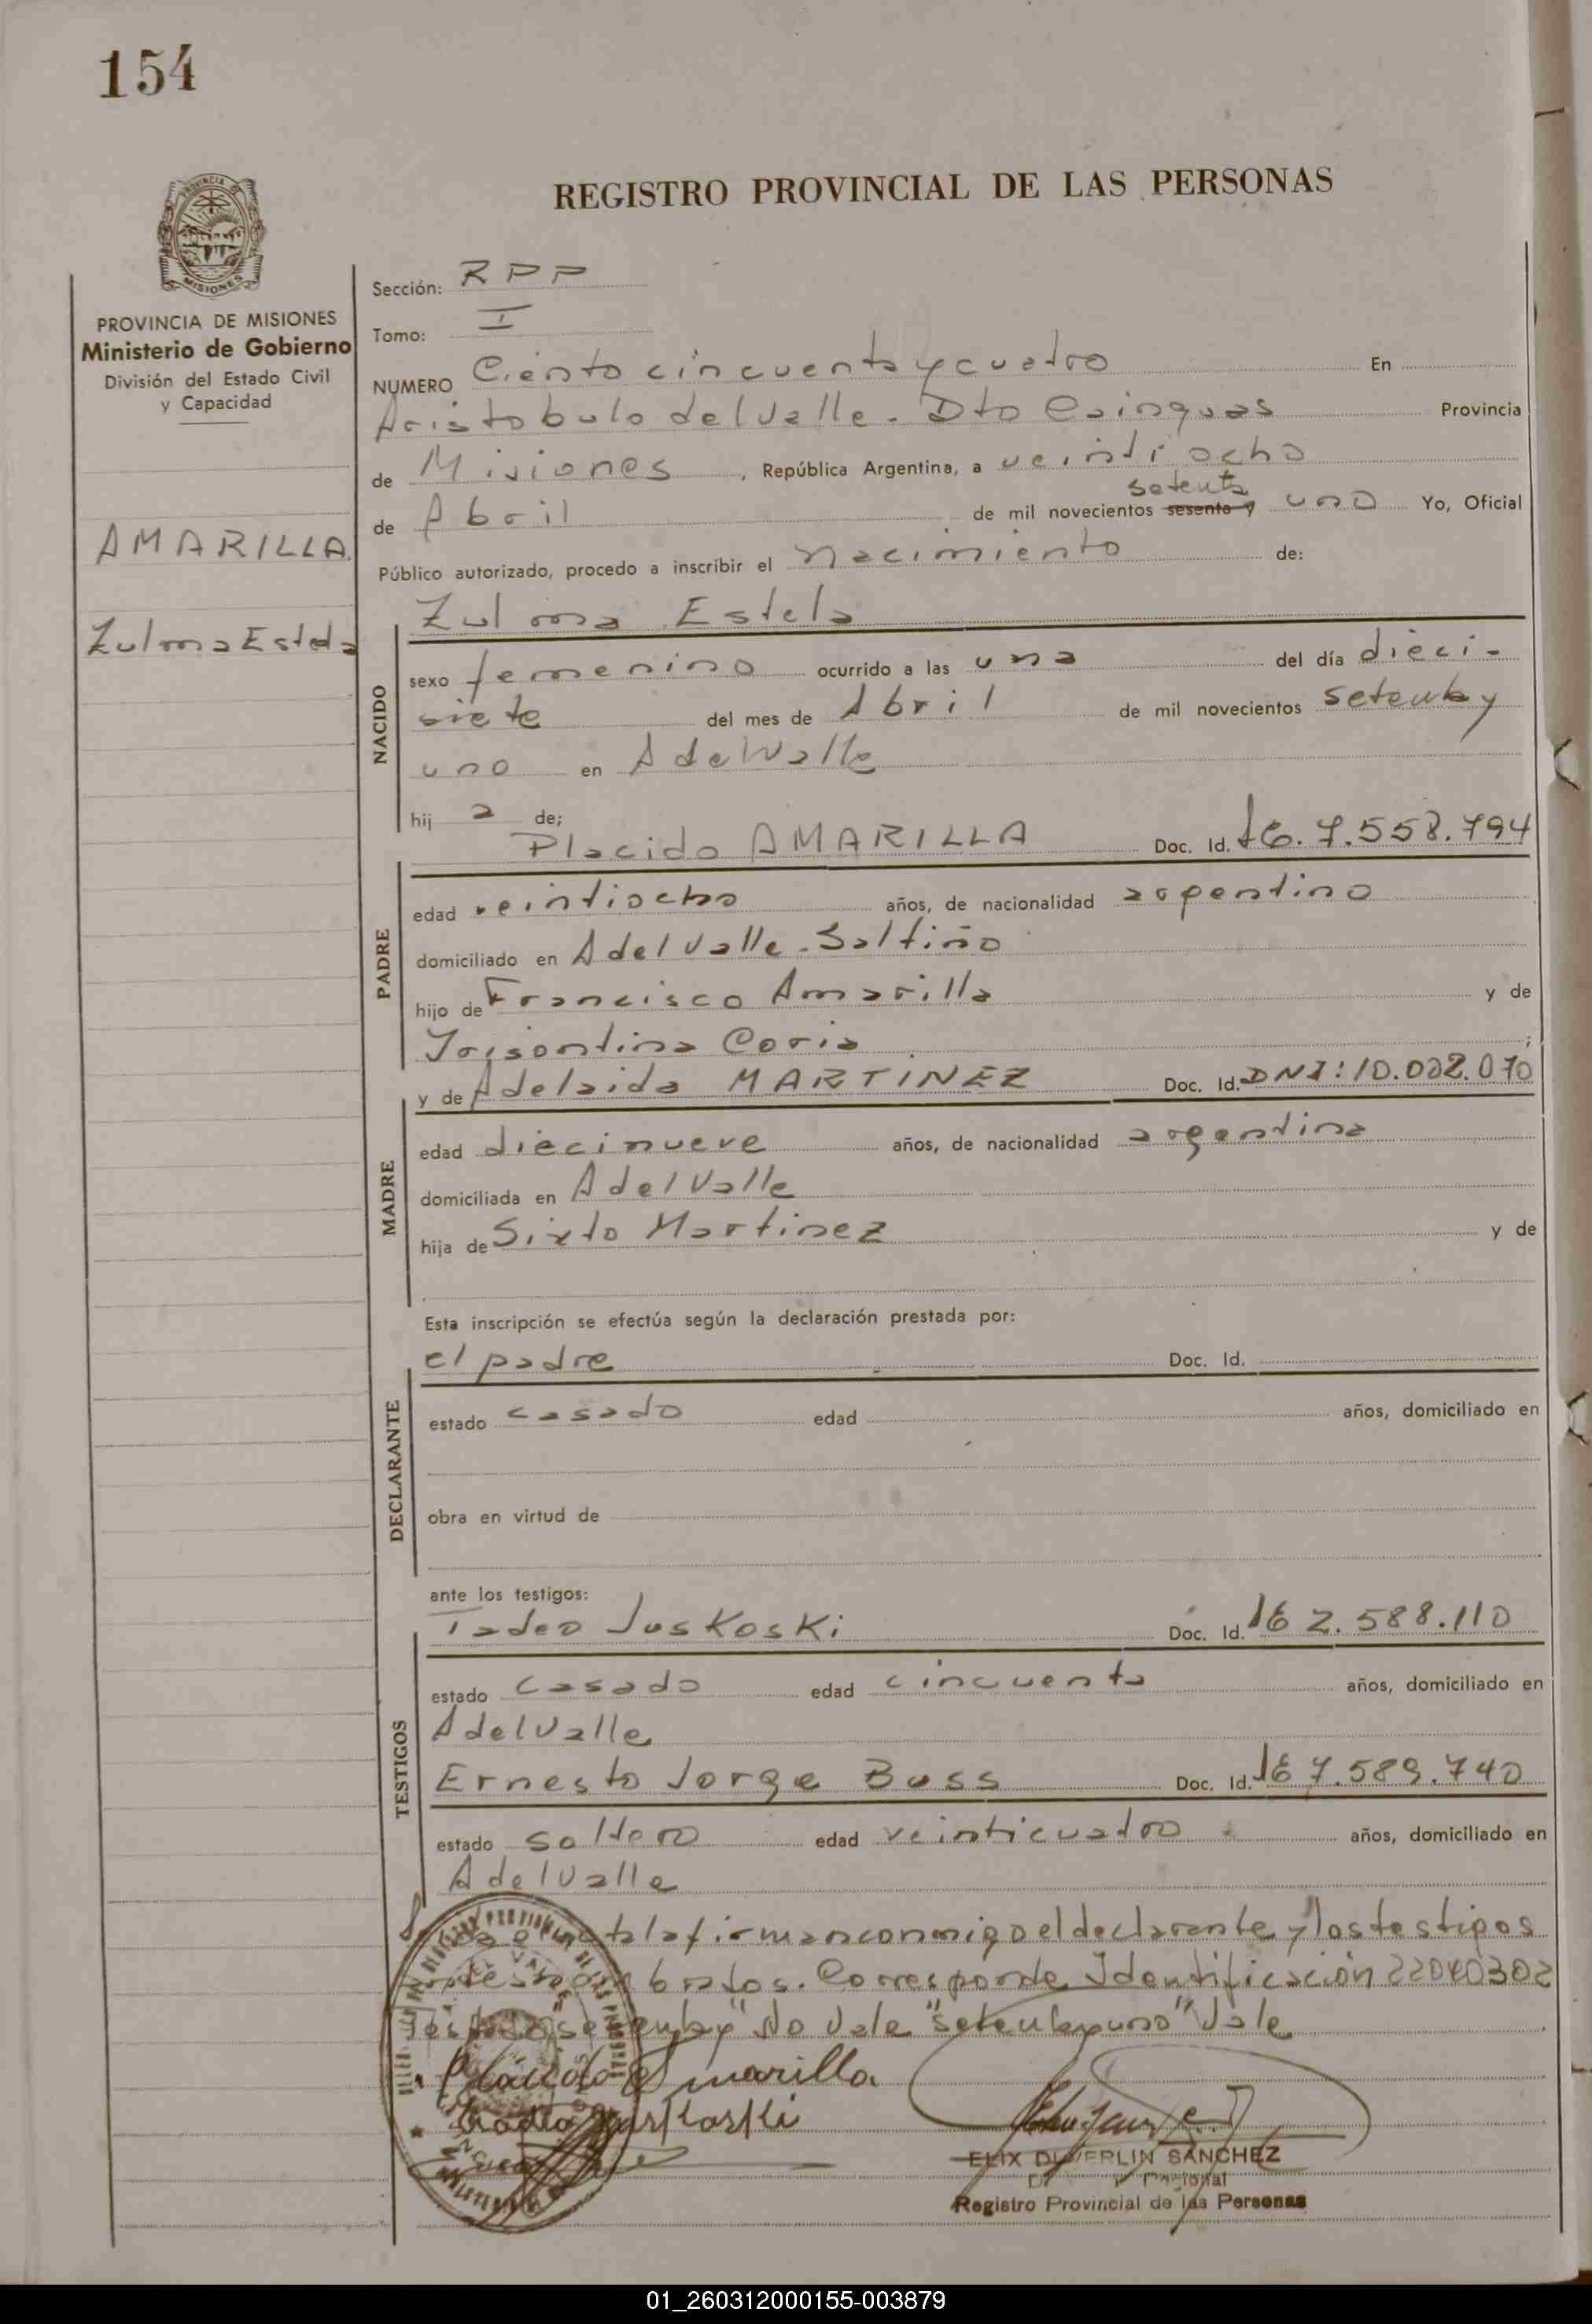 154
REGISTRO PROVINCIAL DE LAS PERSONAS
PROVINCIA DE
MISIONES
PROVINCIA DE MISIONES
Ministerio de Gobierno
División del Estado Civil
y Capacidad
AMARILLA
Zulma Estela
Sección: RPP
Tomo: I
NUMERO Ciento cincuenta y cuatro En
Aristobulo del Valle. Dto Cainguas Provincia
de Misiones, República Argentina, a veintiocho
setenta
de Abril de mil novecientos sesenta y uno Yo, Oficial
Público autorizado, procedo a inscribir el nacimiento de:
Zulma Estela
NACIDO
sexo femenino ocurrido a las una del día dieci-
siete del mes de Abril de mil novecientos setenta y
uno en A del Valle
hij a de;
Placido AMARILLA Doc. Id. 7.558.794
PADRE
edad veintiocho años, de nacionalidad argentino
domiciliado en A del Valle. Saltiño
hijo de Francisco Amarilla y de
Coria;
y de Adelaida MARTINEZ Doc. Id. DNI: 10.002.070
MADRE
edad diecinueve años, de nacionalidad argentina
domiciliada en A del Valle
hija de Sixto Martinez y de
Esta inscripción se efectúa según la declaración prestada por:
el padre Doc. Id.
DECLARANTE
estado casado edad años, domiciliado en
obra en virtud de
ante los testigos:
Tadeo JusKosKi Doc. Id. 2.588.110
TESTIGOS
estado casado edad cincuenta años, domiciliado en
A del Valle
Ernesto Jorge Buss Doc. Id. 7.589.740
estado soltero edad veinticuatro años, domiciliado en
A del Valle
firman conmigo el declarante y los testigos
Corresponde Identificación 22040302
No Vale "setenta y uno" Vale
Plácido Amarilla
ELIX DUVERLIN SANCHEZ
Registro Provincial de las Personas
01_260312000155-003879